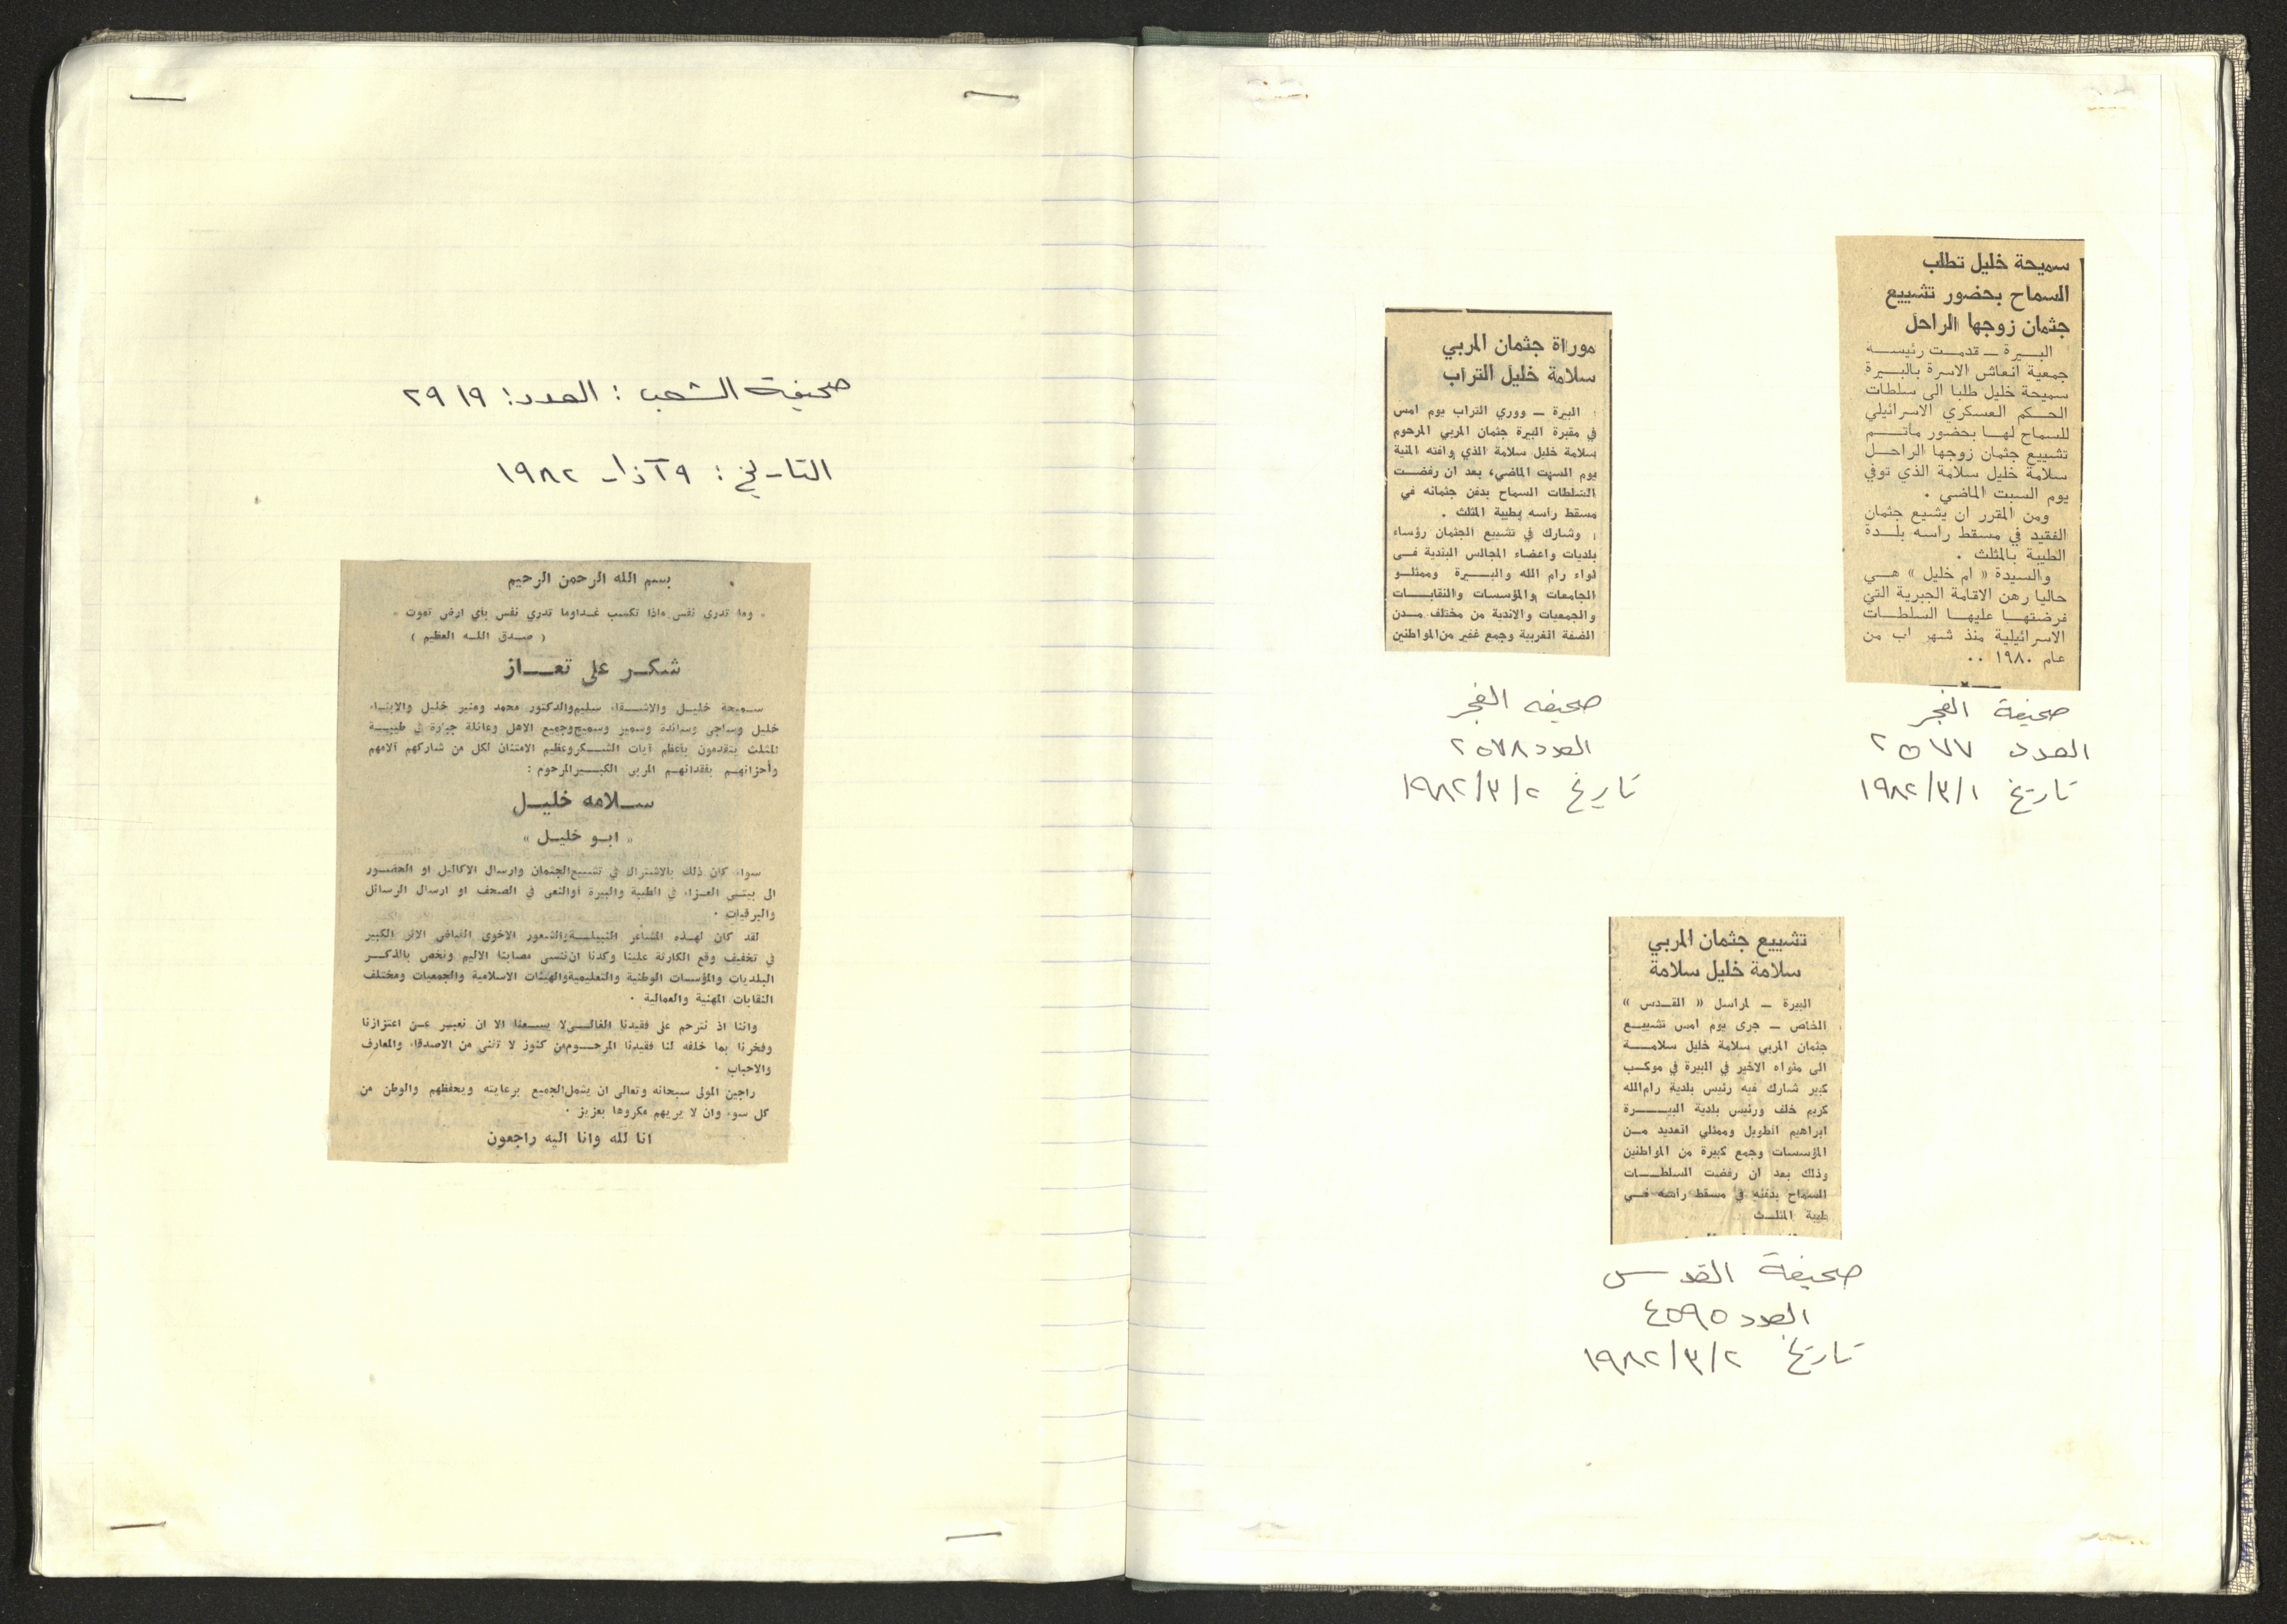 سميحة خليل تطلب
السماح بحضور تشييع
جثمان زوجها الراحل
البيرة ــ قدمت رئيسة
جمعية انعاش الاسرة بالبيرة
سميحة خليل طلبا الى سلطات
الحكم العسكري الاسرائيلي
للسماح لها بحضور مأتم
تشييع جثمان زوجها الراحل
سلامة خليل سلامة الذي توفي
يوم السبت الماضي .
ومن المقرر ان يشيع جثمان
الفقيد في مسقط راسه بلدة
الطيبة بالمثلث .
والسيدة « ام خليل » هي
حاليا رهن الاقامة الجبرية التي
فرضتها عليها السلطات
الاسرائيلية منذ شهر اب من
عام ١٩٨٠ ..
صحيفة الفجر
العدد ٢٥٧٧
تاريخ ١٩٨٢/٣/١
موراة جثمان المربي
سلامة خليل التراب
البيرة ــ ووري التراب يوم امس
في مقبرة البيرة جثمان المربي المرحوم
سلامة خليل سلامة الذي وافته المنية
يوم السبت الماضي، بعد ان رفضت
السلطات السماح بدفن جثمانه في
مسقط راسه بطيبة المثلث .
وشارك في تشييع الجثمان رؤساء
بلديات واعضاء المجالس البلدية في
لواء رام الله والبيرة وممثلو
الجامعات والمؤسسات والنقابات
والجمعيات والاندية من مختلف مدن
الضفة الغربية وجمع غفير من المواطنين
صحيفه الفجر
العدد ٢٥٧٨
تاريخ ١٩٨٢/٣/٢
تشييع جثمان المربي
سلامة خليل سلامة
البيرة ــ لمراسل « القدس »
الخاص ــ جرى يوم امس تشييع
جثمان المربي سلامة خليل سلامة
الى مثواه الاخير في البيرة في موكب
كبير شارك فيه رئيس بلدية رام الله
كريم خلف ورئيس بلدية البيرة
ابراهيم الطويل وممثلي العديد من
المؤسسات وجمع كبيرة من المواطنين
وذلك بعد ان رفضت السلطات
السماح بدفنه في مسقط راسه في
طيبة المثلث
صحيفة القدس
العدد ٤٥٩٥
تاريخ ١٩٨٢/٣/٢
صحيفة الشعب : العدد: ٢٩١٩
التاريخ: ٩ آذار ١٩٨٢
بسم الله الرحمن الرحيم
« وما تدري نفس ماذا تكسب غدا وما تدري نفس باي ارض تموت »
( صدق الله العظيم )
شكر على تعاز
سميحة خليل والاشقاء سليم والدكتور محمد ومنير خليل والابناء
خليل وساجي وسائدة وسمير وسميح وجميع الاهل وعائلة جبارة في طيبة
المثلث يتقدمون بأعظم آيات الشكر وعظيم الامتنان لكل من شاركهم آلامهم
وأحزانهم بفقدانهم المربي الكبير المرحوم :
سلامه خليل
« ابو خليل »
سواء كان ذلك بالاشتراك في تشييع الجثمان وارسال الاكاليل او الحضور
الى بيتي العزاء في الطيبة والبيرة أو النعي في الصحف او ارسال الرسائل
والبرقيات .
لقد كان لهذه المشاعر النبيلة والشعور الاخوي الفياض الاثر الكبير
في تخفيف وقع الكارثة علينا وكدنا ان ننسى مصابنا الاليم ونخص بالذكر
البلديات والمؤسسات الوطنية والتعليمية والهيئات الاسلامية والجمعيات ومختلف
النقابات المهنية والعمالية .
واننا اذ نترحم على فقيدنا الغالي لا يسعنا الا ان نعبر عن اعتزازنا
وفخرنا بما خلفه لنا فقيدنا المرحوم من كنوز لا تفنى من الاصدقاء والمعارف
والاحباب .
راجين المولى سبحانه وتعالى ان يشمل الجميع برعايته ويحفظهم والوطن من
كل سوء وان لا يريهم مكروها بعزيز .
انا لله وانا اليه راجعون